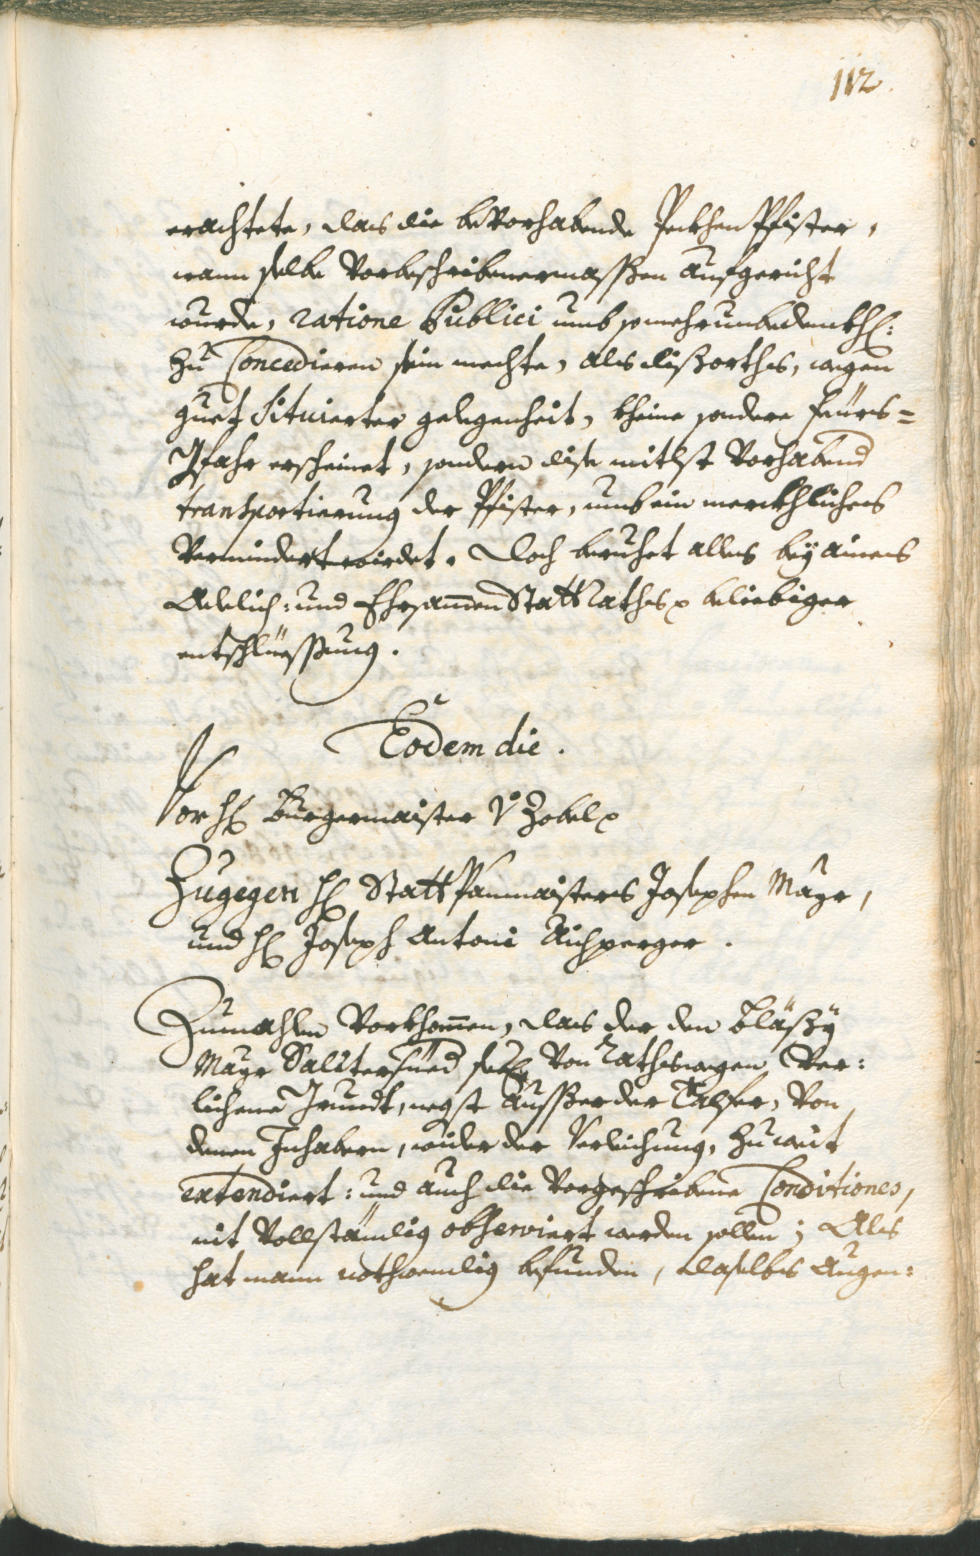 112.
erachtete, das die bevorhabende Peckhen Pfister,
wann selbe vorbeschribenermassen aufgericht
wurde, ratione Publici umb somehr unbedenckhl:
zu Concedieren sein mechte, als diß orthes, wegen
guet situierter gelegenheit, kheine sondere feürs=
gfahr erscheinet, sondern dise mitlst vorhabend
transportierung der Pfister, umb ein merckhliches
vermindert wirdet. Doch beruhet alles bey aines
Adelich: und Ehrsamen Statt Raths beliebiger
entschliessung.
Eodem die.
Vor H Burgermaister v Zobel
Zugegen H Statt Paumaisters Josephen Mayr,
und H Joseph Antoni Aichperger.
Zumahlen vorkhomen, das der den Bläsy
Mayr Salitersied seel von Raths wegen ver:
lichene Grundt, negst ausser der Talfer, von
denen Inhabern, wider der Verleichung, zu weit
extendiert: und auch die vorgeschribene Conditiones,
nit vollständig observiert werden sollen; Als
hat mann nothwendig befunden, daselbs Augen: